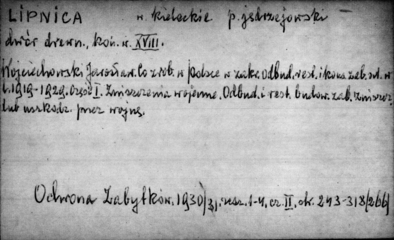 LIPNICA w. kieleckie p. jędrzejowski
dwór drewn., kon. w. XVIII.
Wojciechowski Jarosław. Co zrob. w Polsce w zakr. odbud. rest. i kons. zab. szt. w
l. 1919-1929. Część I. Zniszczenia wojenne. Odbud. i rest. budow. zab. zniszcz.
lub uszkodz. przez wojnę.
Ochrona Zabytków. 1930/31. zesz. 1-4, cz. II, str. 243-318/266/